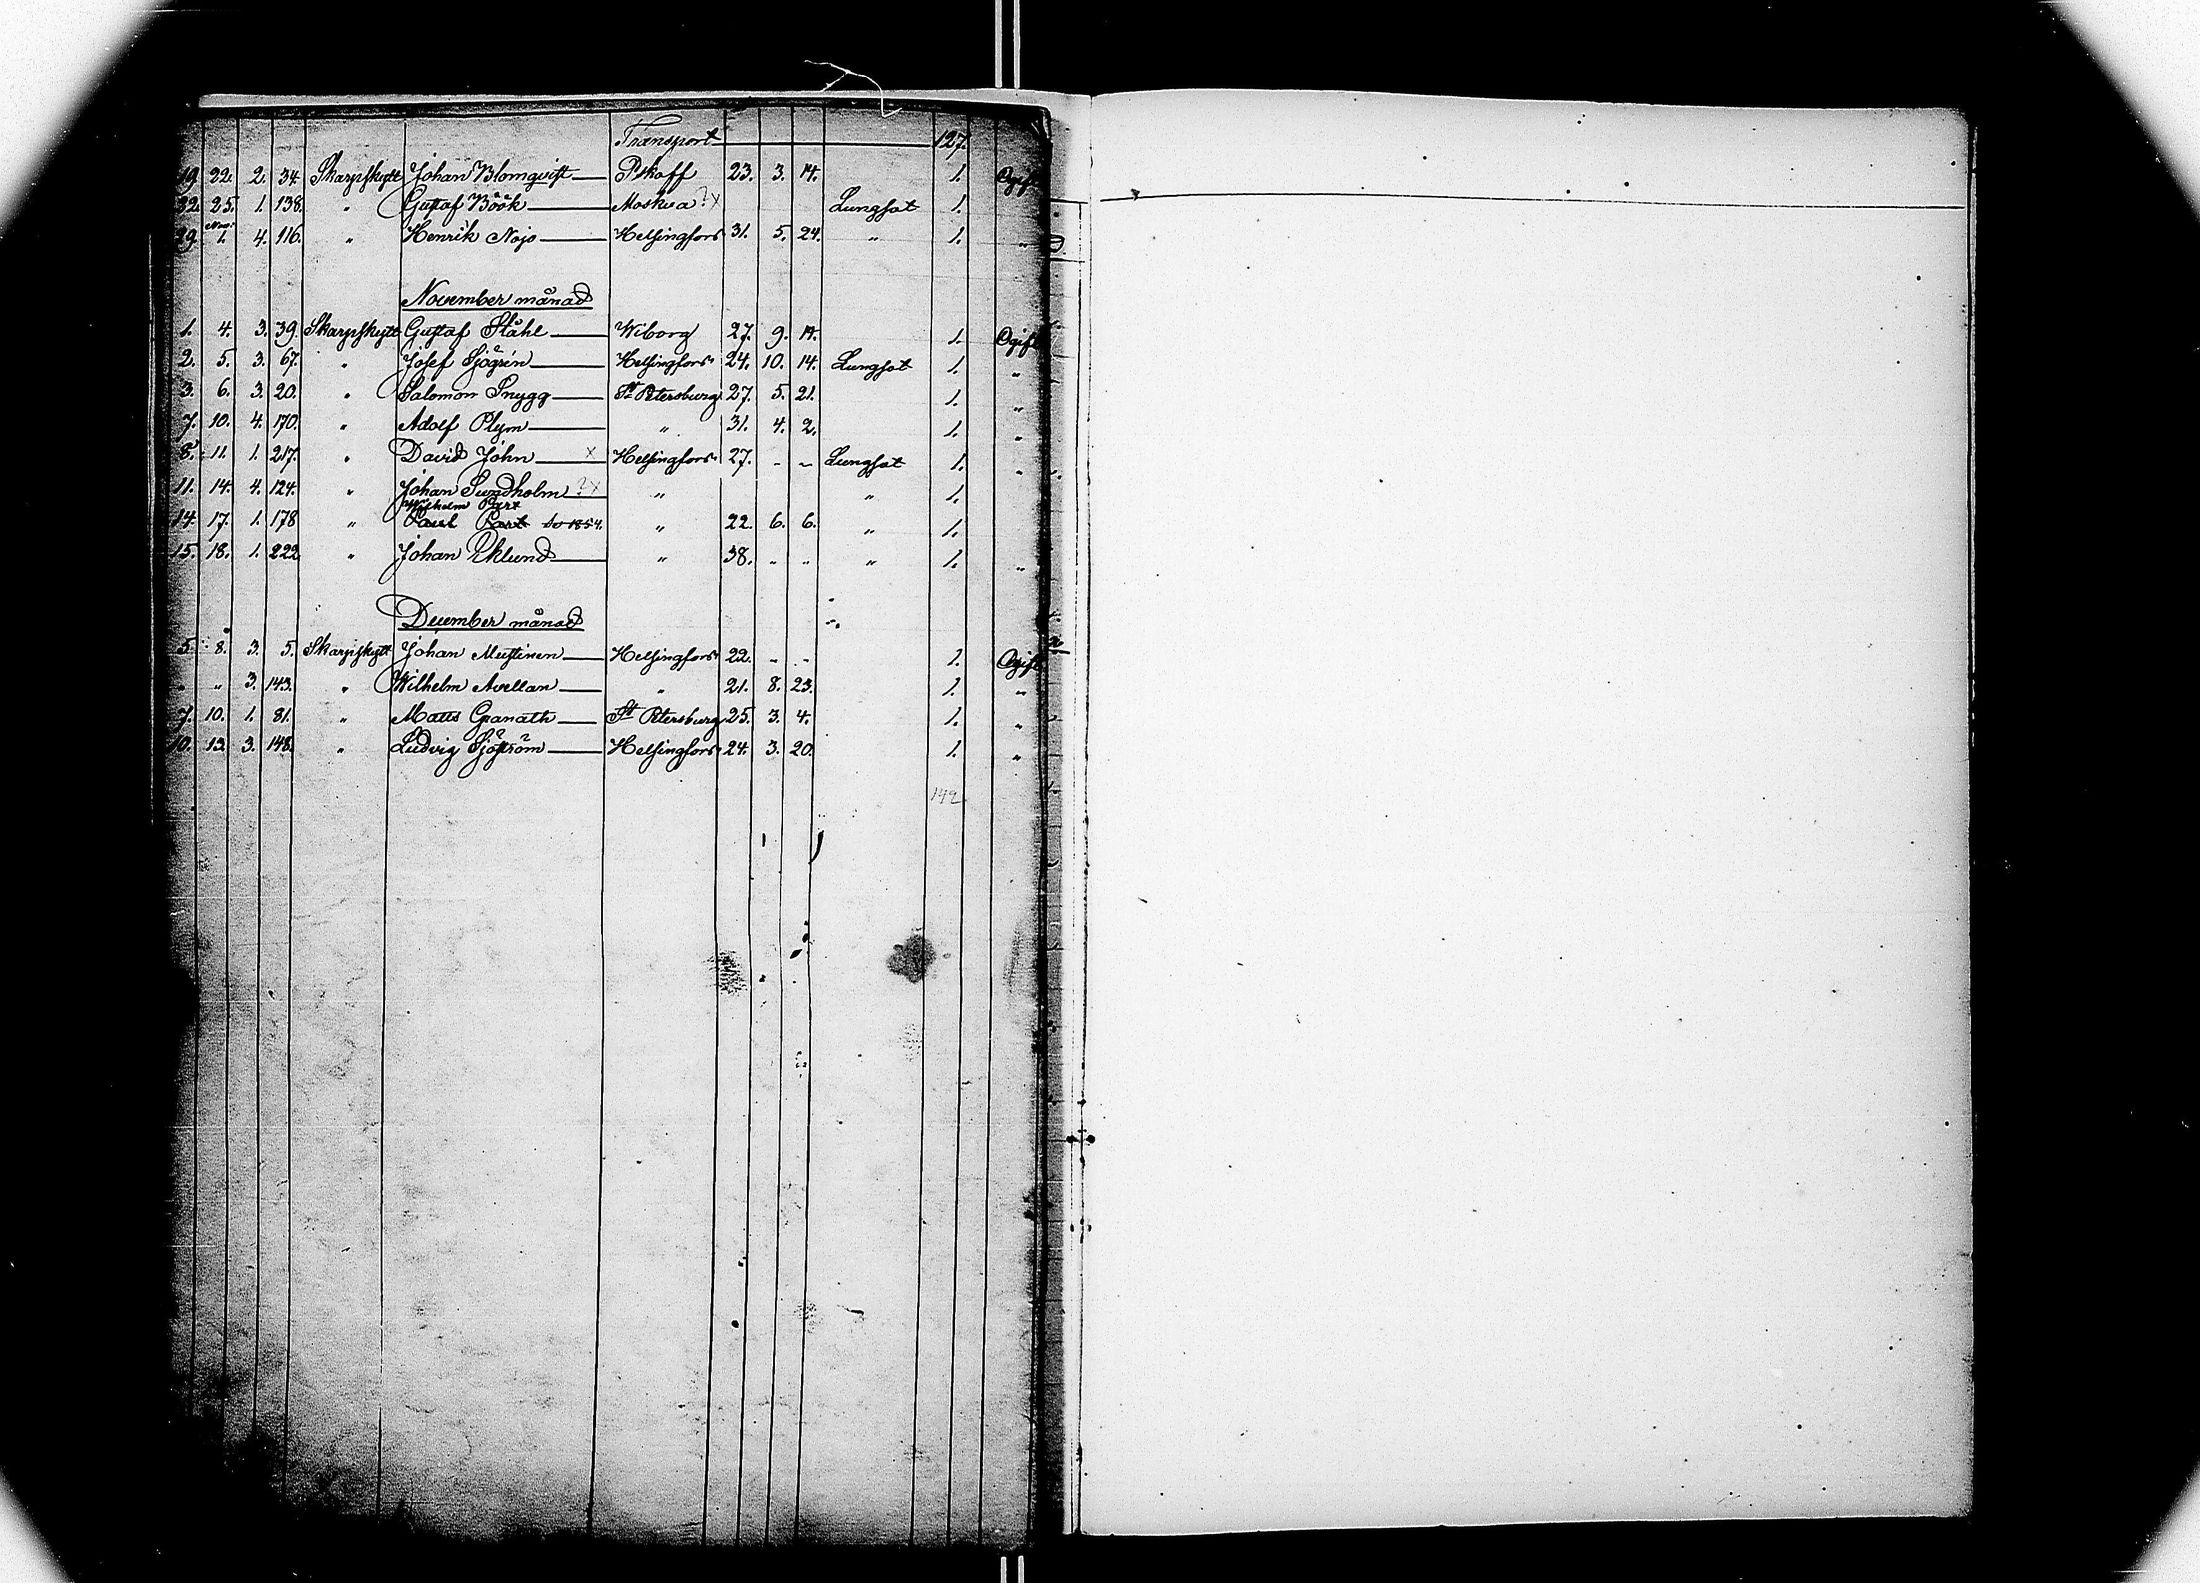 Transport 127.
19. 22. 2. 34. Skarpskytt Johan Blomqvist Pskoff 23. 3. 14. 1. Ogift
22. 25. 1. 138. " Gustaf Böök Moskva ?x Lungsot 1.
Nov:
29. 1. 4. 116. " Henrik Nojo Helsingfors 31. 5. 24. " 1. "
November månad
1. 4. 3. 39. Skarpskytt Gustaf Ståhl Wiborg 27. 9. 14. 1. Ogift
2. 5. 3. 67. " Josef Sjögrén Helsingfors 24. 10. 14. Lungsot 1. "
3. 6. 3. 20. " Salomon Snygg St Petersburg 27. 5. 21. 1. "
7. 10. 4. 170. " Adolf Plym " 31. 4. 2. 1. "
8. 11. 1. 217. " David John x Helsingfors 27. - - Lungsot 1. "
11. 14. 4. 124. " Johan Sundholm ?x " " 1.
Wilhelm Part
14. 17. 1. 178 " Paul Part 1854. " 22. 6. 6. " 1.
15. 18. 1. 222 " Johan Eklund " 38. " " " 1. "
December månad
5. 8. 3. 5. Skarpskytt Johan Mustinen Helsingfors 22. - - 1. Ogift
" " 3. 143. " Wilhelm Avellan " 21. 8. 23. 1. "
7. 10. 1. 81. " Matts Granath St Petersburg 25. 3. 4. 1. "
10. 13. 3. 148. " Ludvig Sjöström Helsingfors 24. 3. 20. 1. "
142